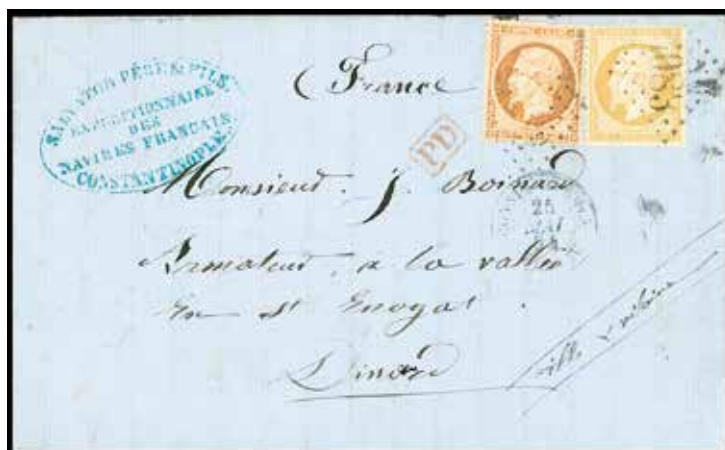 SALVATOR PÈRE & FILS.
EXPEDITIONNAIRE
DES
NAVIRES FRANÇAIS
CONSTANTINOPLE
France
PD
Monsieur J. Boinard
25
MAI
Armateur à la vallée
En St Enogat.
Dinard
ille & vilaine